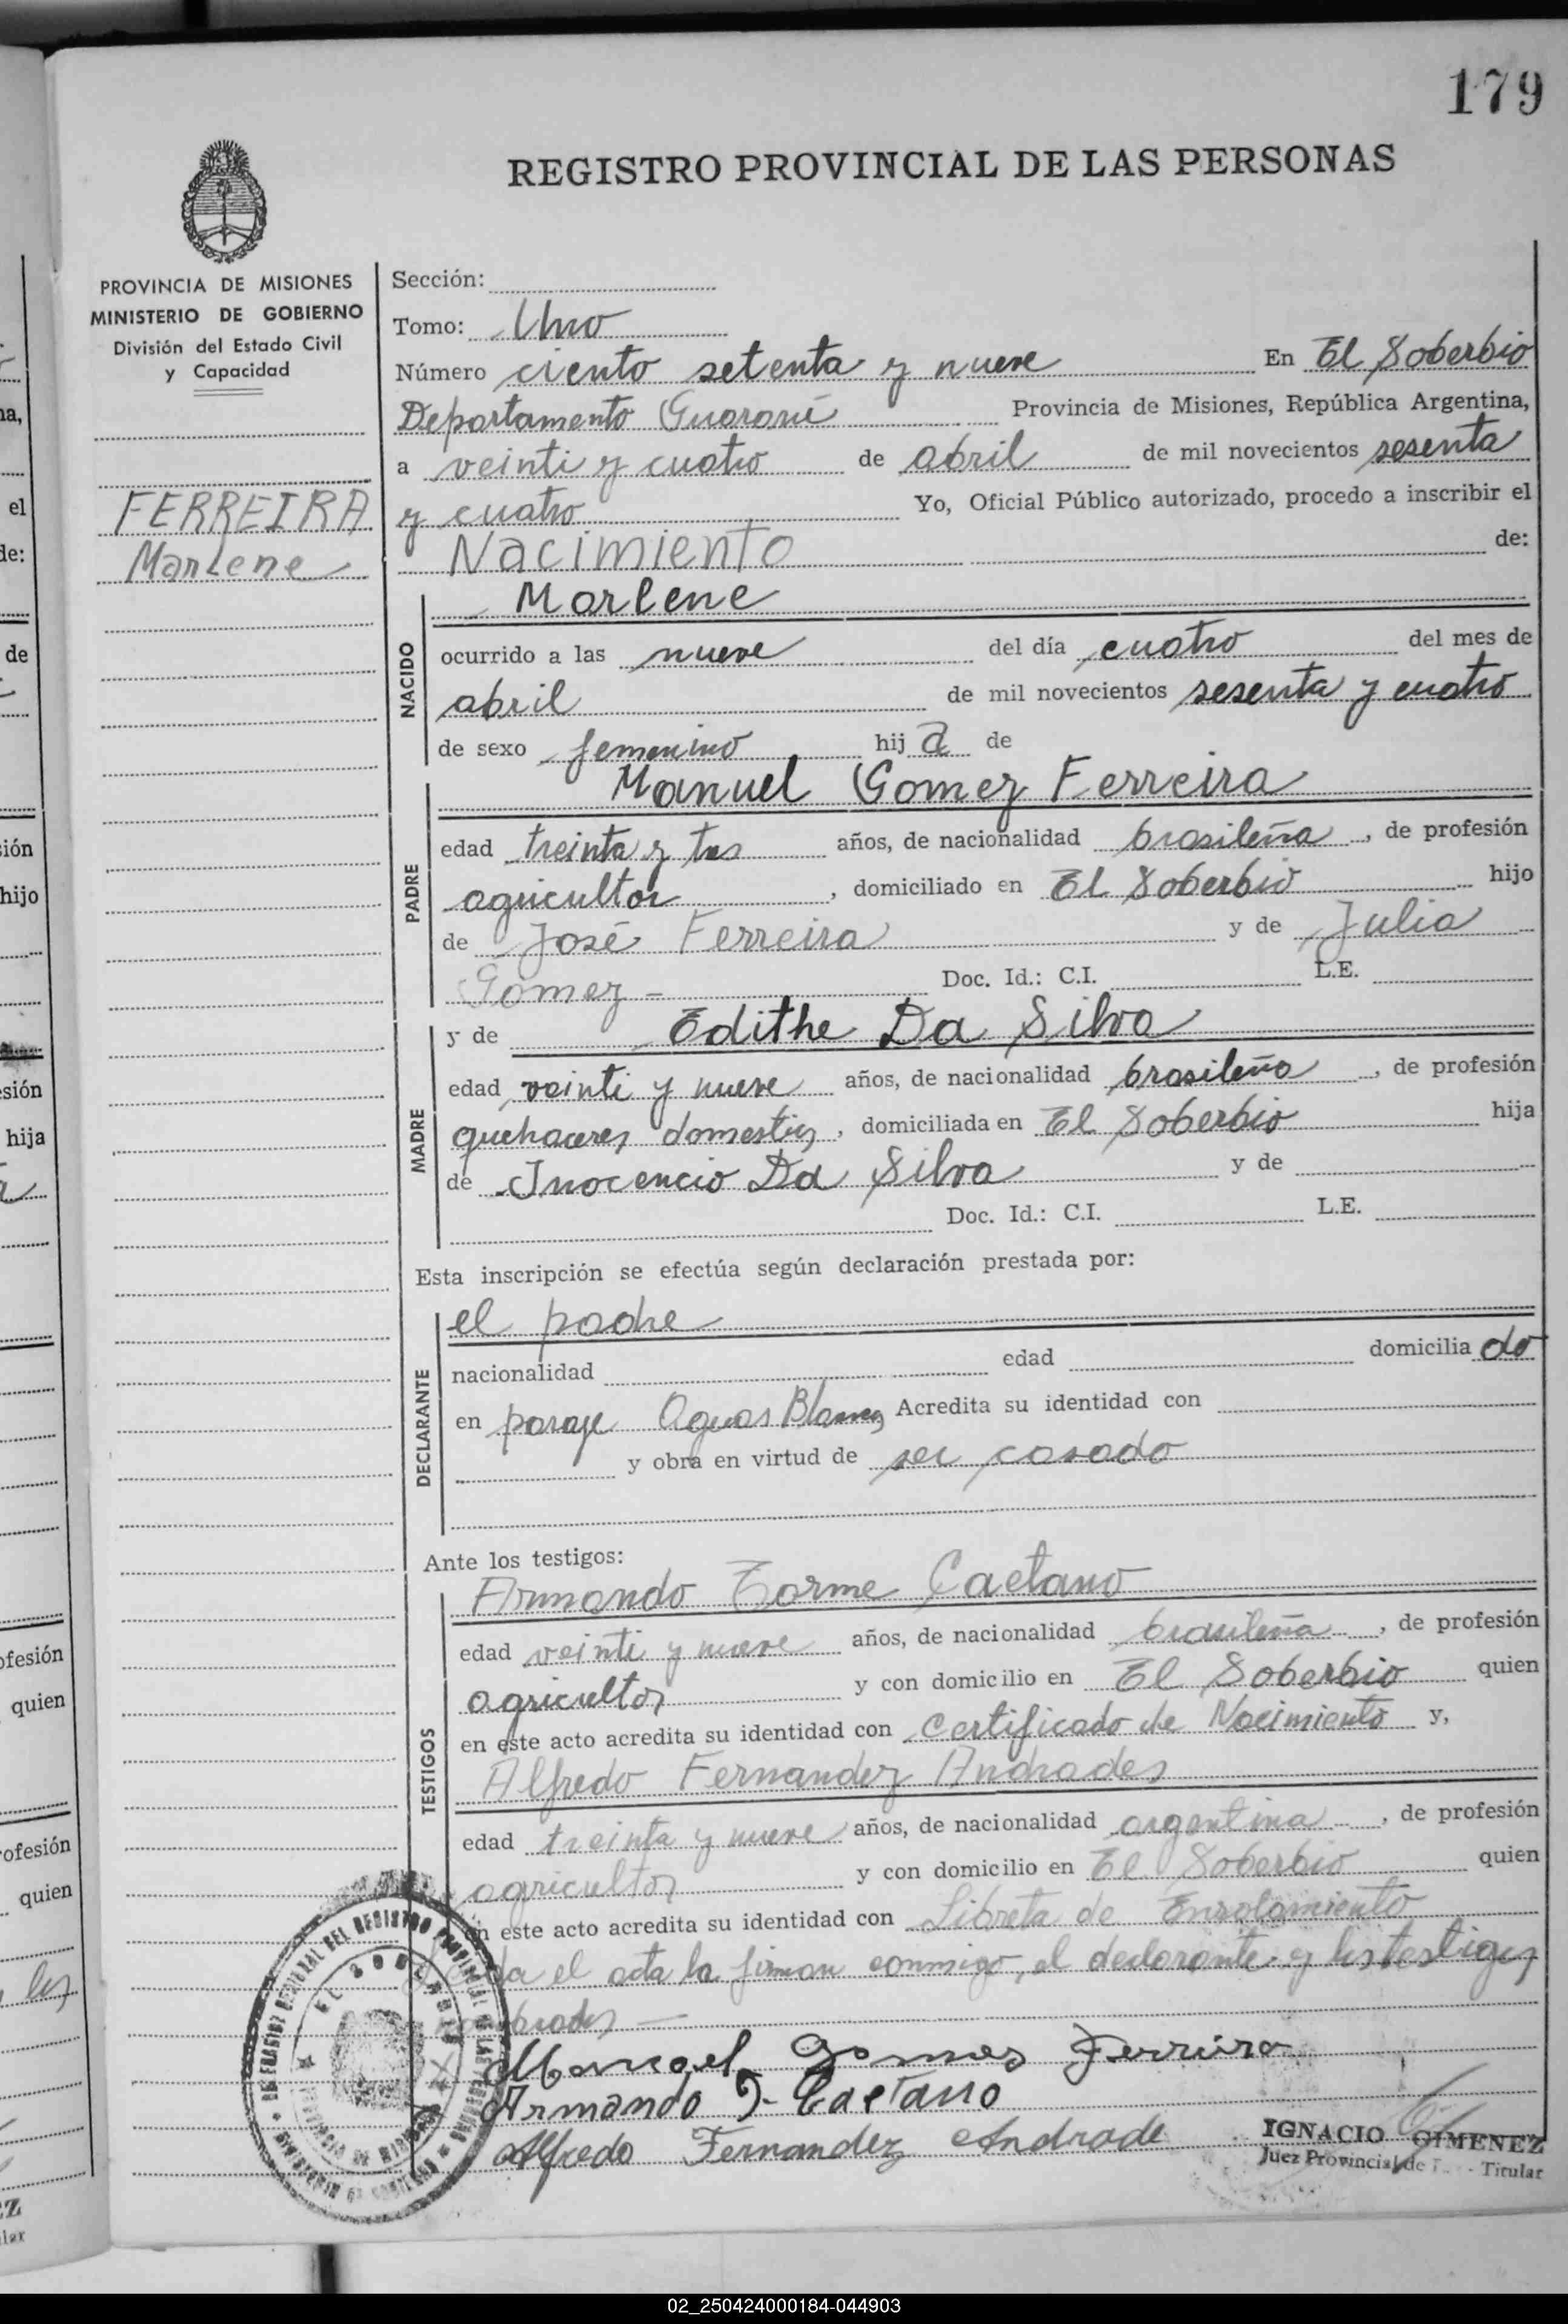 179
REGISTRO PROVINCIAL DE LAS PERSONAS
PROVINCIA DE MISIONES
MINISTERIO DE GOBIERNO
División del Estado Civil
y Capacidad
FERREIRA
Marlene
Sección:
Tomo: Uno
Número ciento setenta y nueve En El Soberbio
Departamento Guaraní Provincia de Misiones, República Argentina,
a veinti y cuatro de abril de mil novecientos sesenta
y cuatro Yo, Oficial Público autorizado, procedo a inscribir el
Nacimiento de:
NACIDO
Marlene
ocurrido a las nueve del día cuatro del mes de
abril de mil novecientos sesenta y cuatro
de sexo femenino hij a de
PADRE
Manuel Gomez Ferreira
edad treinta y tres años, de nacionalidad brasileña, de profesión
agricultor, domiciliado en El Soberbio hijo
de José Ferreira y de Julia
Gomez - Doc. Id.: C.I. L.E.
MADRE
y de Edithe Da Silva
edad veinti y nueve años, de nacionalidad brasileña, de profesión
quehaceres domestics, domiciliada en El Soberbio hija
de Inocencio Da Silva y de
Doc. Id.: C.I. L.E.
Esta inscripción se efectúa según declaración prestada por:
DECLARANTE
el padre
nacionalidad edad domicilia do
en paraje Aguas Blancas Acredita su identidad con
y obra en virtud de ser casado
Ante los testigos:
TESTIGOS
Armando Torme Caetano
edad veinti y nueve años, de nacionalidad brasileña, de profesión
agricultor y con domicilio en El Soberbio quien
en este acto acredita su identidad con Certificado de Nacimiento y,
Alfredo Fernandez Andrades
edad treinta y nueve años, de nacionalidad argentina, de profesión
agricultor y con domicilio en El Soberbio quien
en este acto acredita su identidad con Libreta de Enrolamiento
el acta la firman conmigo, el declarante y los testigos
Manoel Gomes Ferreira
Armando T. Caetano
Alfredo Fernandez Andrade
IGNACIO GIMENEZ
Juez Provincial de Titular
02_250424000184-044903